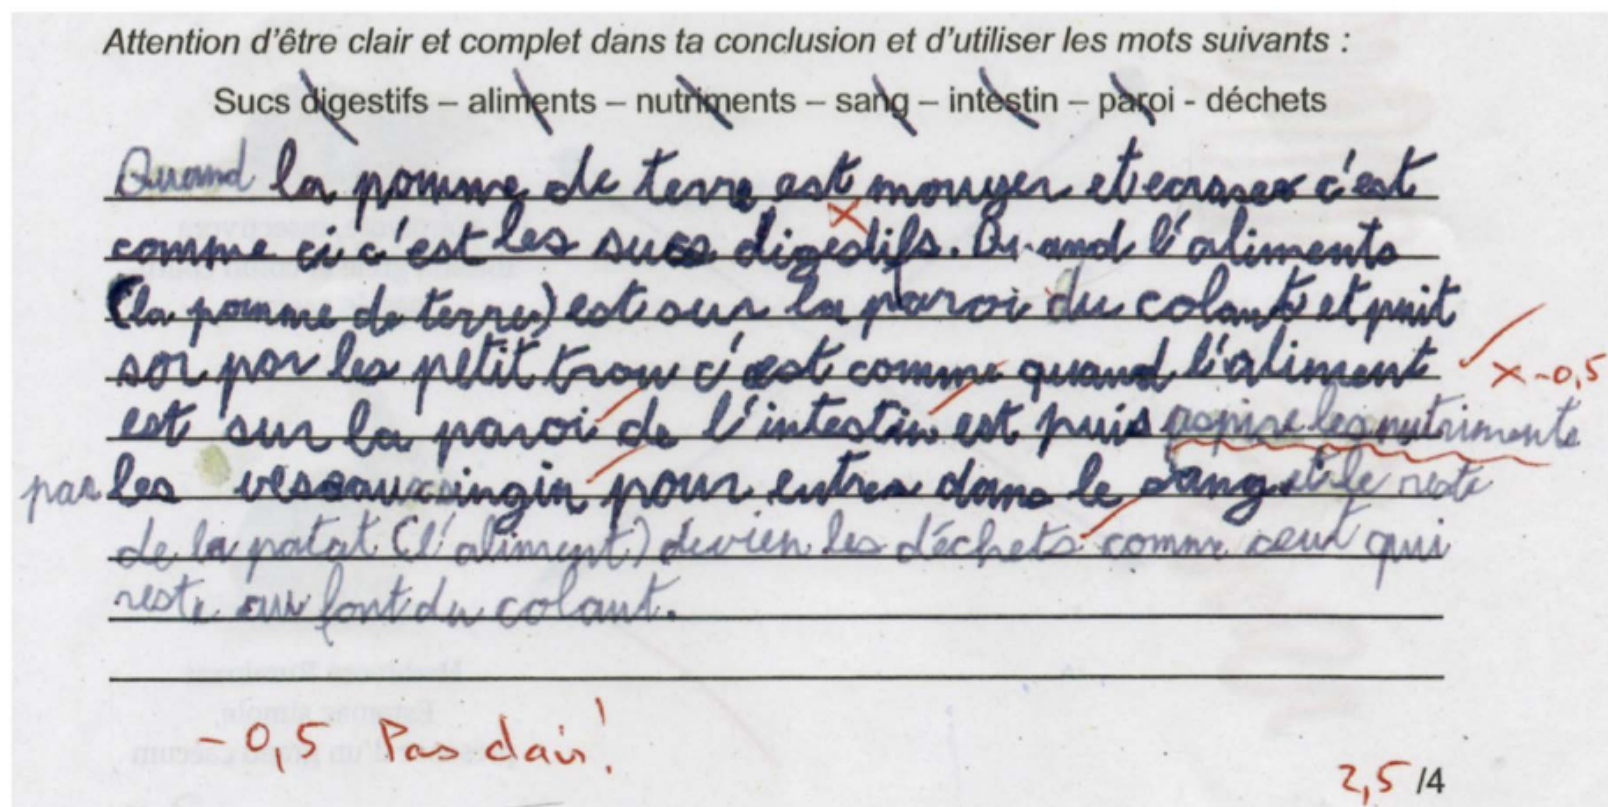 Attention d'être clair et complet dans ta conclusion et d'utiliser les mots suivants :
Sucs digestifs – aliments – nutriments – sang – intestin – paroi - déchets
Quand la pomme de terre est mouyer et ecraser c'est
comme ci c'est les sucs digestifs. Quand l'aliments
(la pomme de terre) est sur la paroi du colant et puit
sor par les petit trou c'est comme quand l'aliment
x -0,5
est sur la paroi de l'intestin est puis aspire les nutriments
par les vesaux singin pour entrer dans le sang et le reste
de la patat (l'aliment) devien les déchets comme ceut qui
reste au font du colant.
-0,5 Pas clair!
2,5 /4